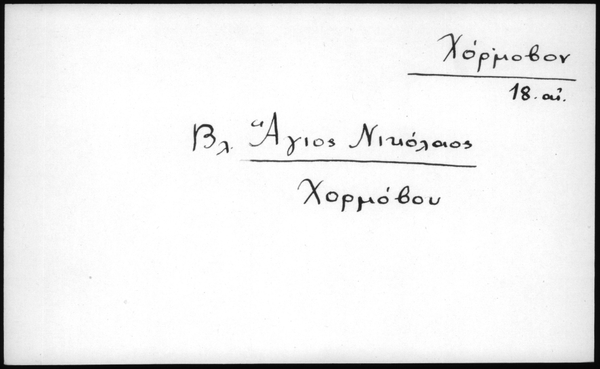 Χόρμοβον
18. αἰ.
Βλ. Ἅγιος Νικόλαος
Χορμόβου